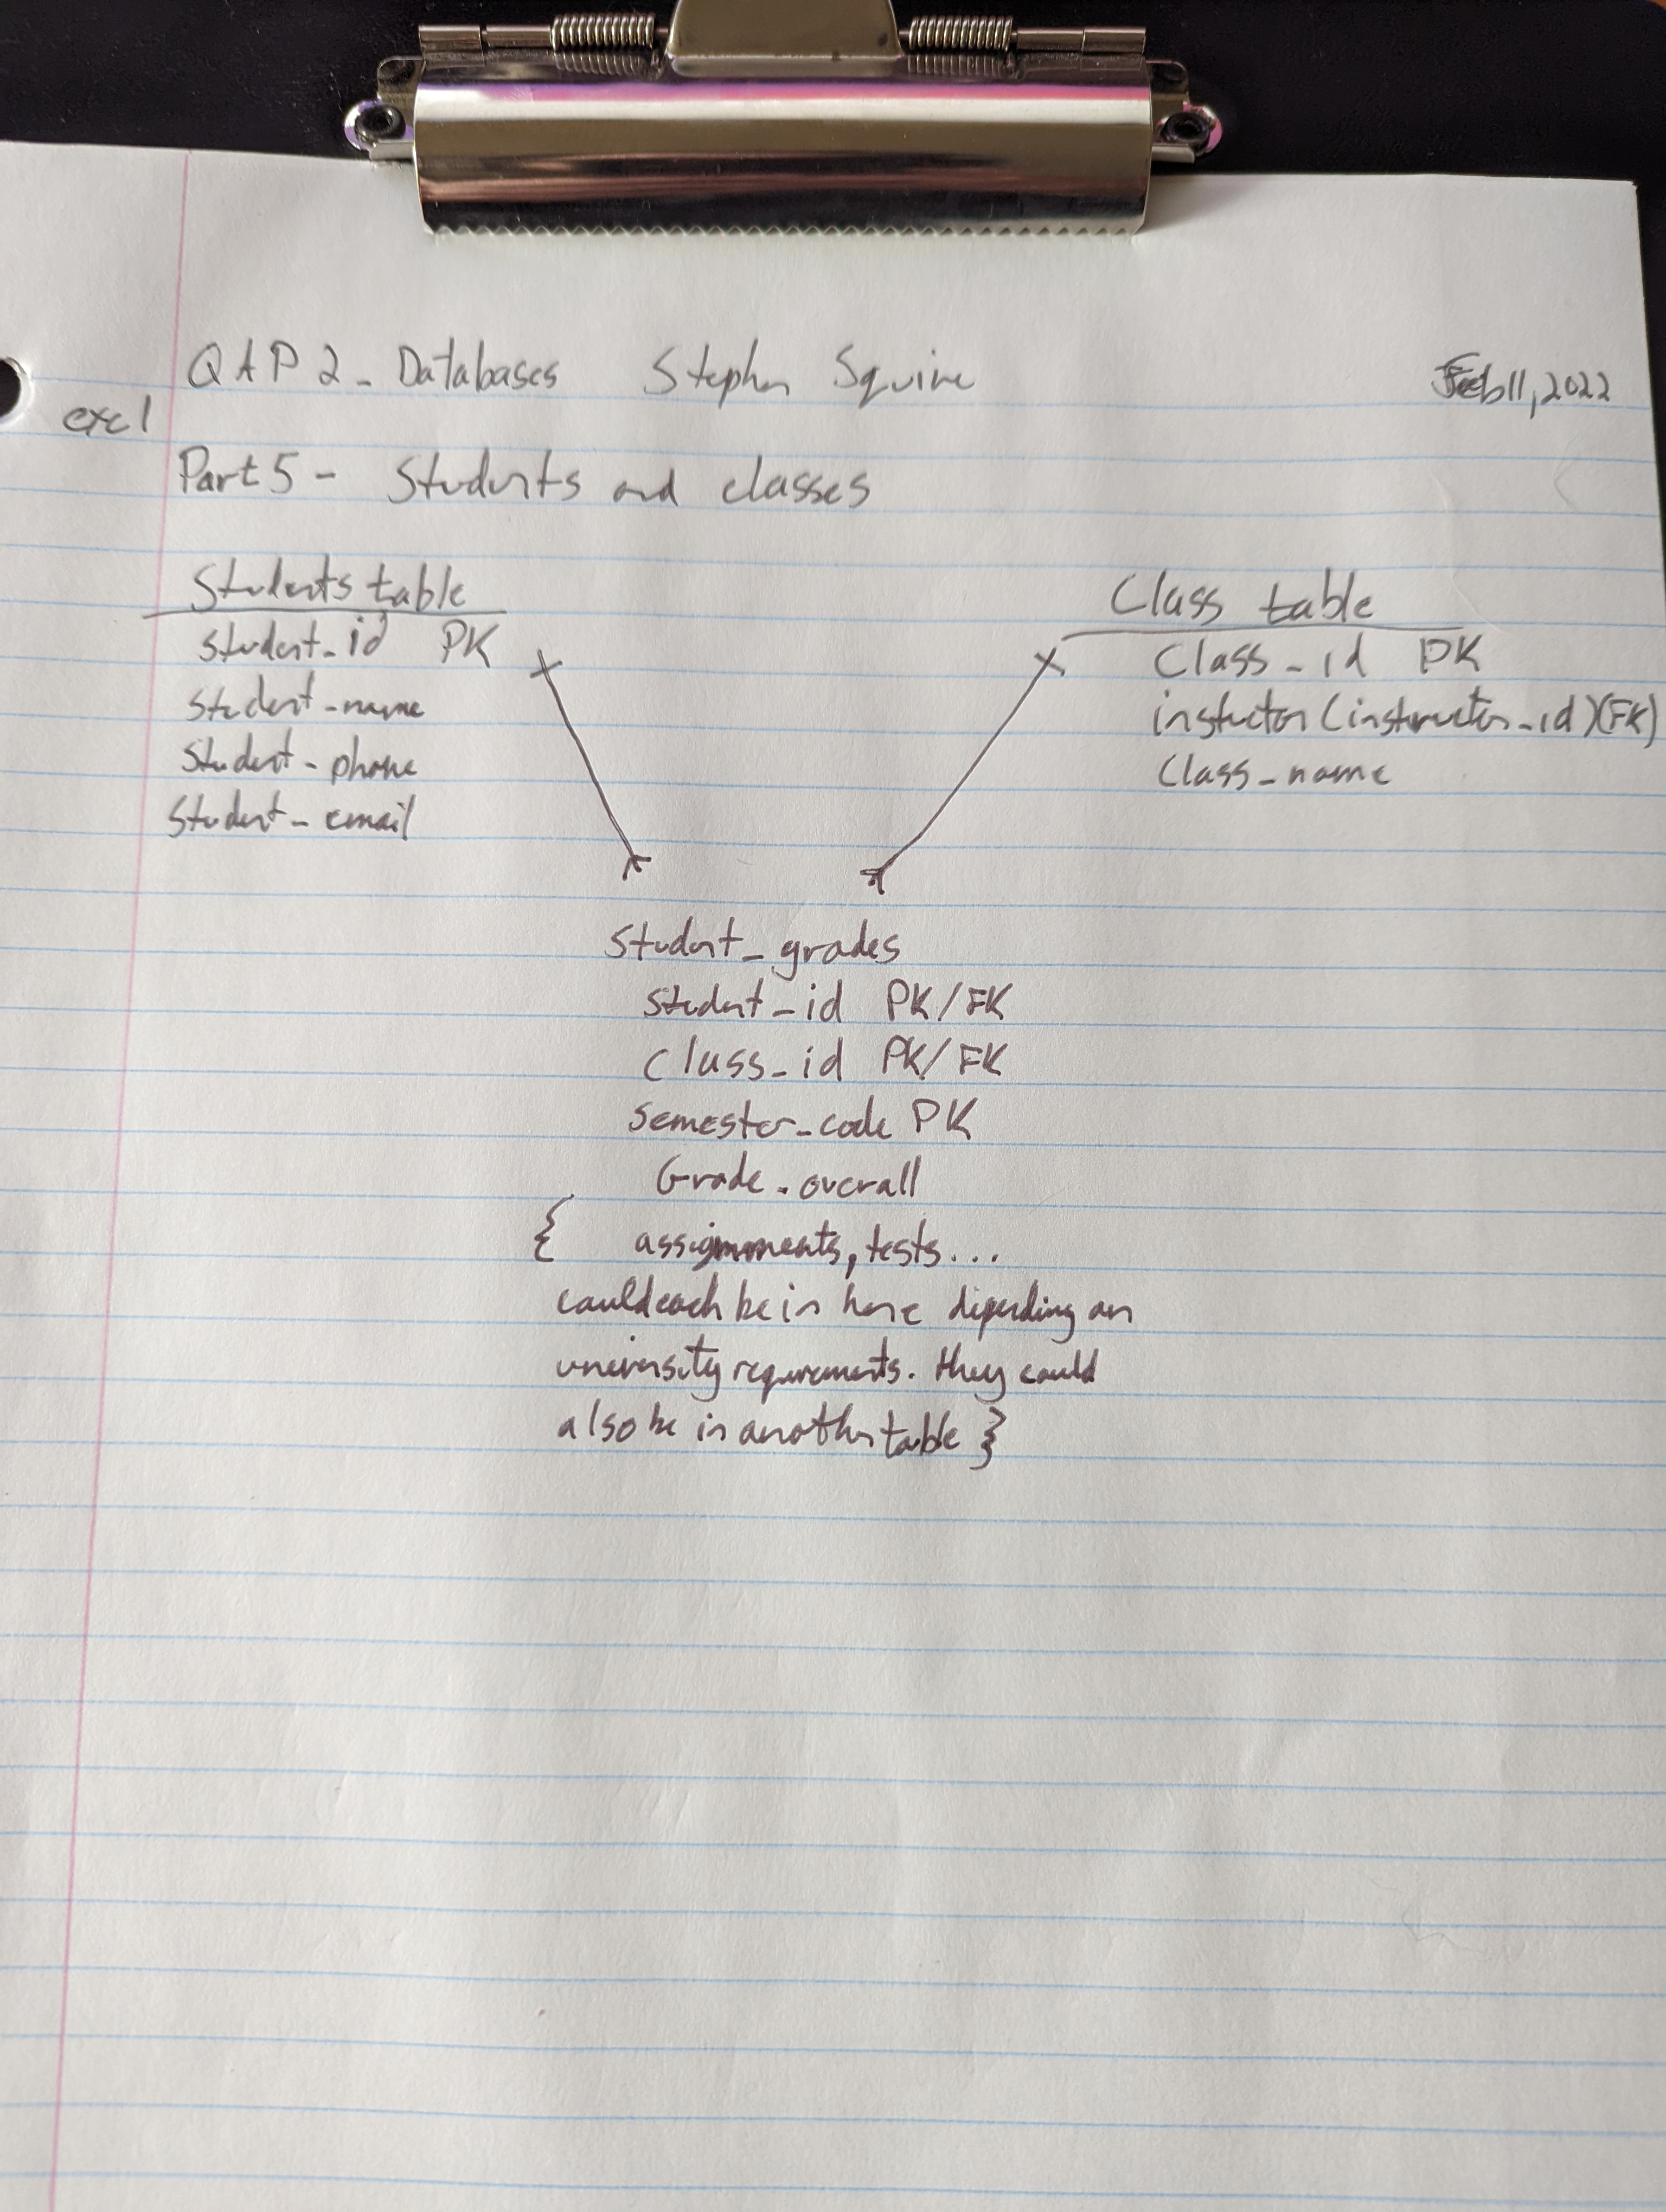 QAP 2 - Databases Stephen Squire Feb 11, 2022
exc 1
Part 5 - Students and classes
Students table
student_id PK
student_name
student_phone
student_email
Class table
Class_id PK
instuctor (instructor_id)(FK)
Class_name
Student_grades
student_id PK/FK
class_id PK/FK
semester_code PK
Grade_overall
{ assignments, tests...
could each be in here depending on
university requirements. they could
also be in another table }